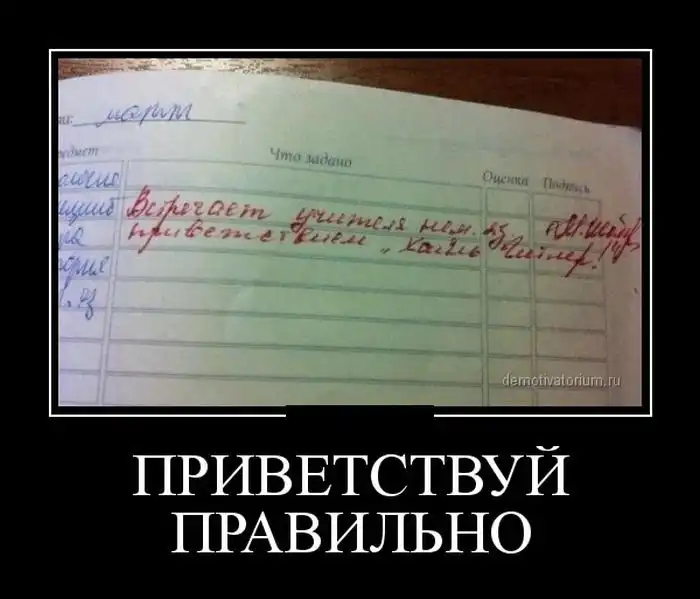 марта
Что задано
Оценка
Подпись
Встречает учителя нем. яз
приветствием „Хайль Гитлер!"
demotivatorium.ru
ПРИВЕТСТВУЙ
ПРАВИЛЬНО